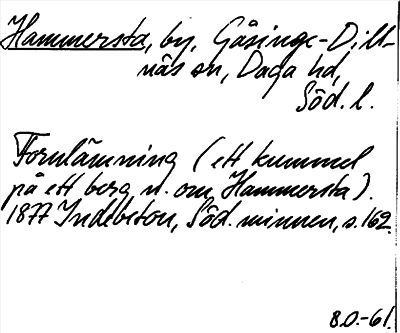 Hammersta, by, Gåsinge-Dill-
näs sn, Daga hd,
Söd. l.
Fornlämning (ett kummel
på ett berg n. om Hammersta).
1877 Indebetou, Söd. minnen, s. 162.
B.O.-61.